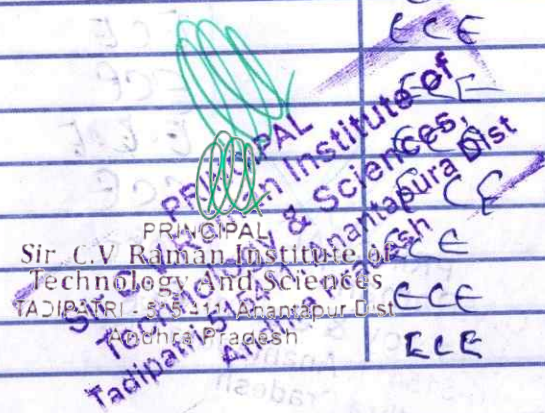 ECE
ECE
ECE
ECE
ECE
ECE
ECE
PRINCIPAL
Sir C.V. Raman Institute of
Technology & Sciences,
Tadipatri-515411, Anantapura Dist
Andhra Pradesh
PRINCIPAL
Sir C.V Raman Institute of
Technology And Sciences
TADIPATRI - 515 411 Anantapur Dist
Andhra Pradesh